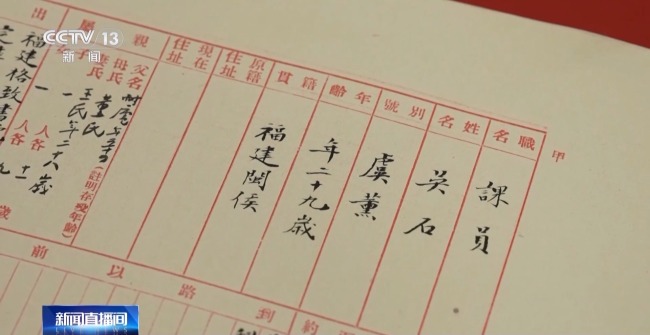 CCTV 13
新闻
甲
職名
課員
姓名
吳石
別號
虞薰
年齡
年二十九歲
籍貫
福建閩侯
原籍住址
現在住址
父名
母氏
王氏年二十八歲
(註明存歿年齡)
出
福建格致書
到路以前
新闻直播间